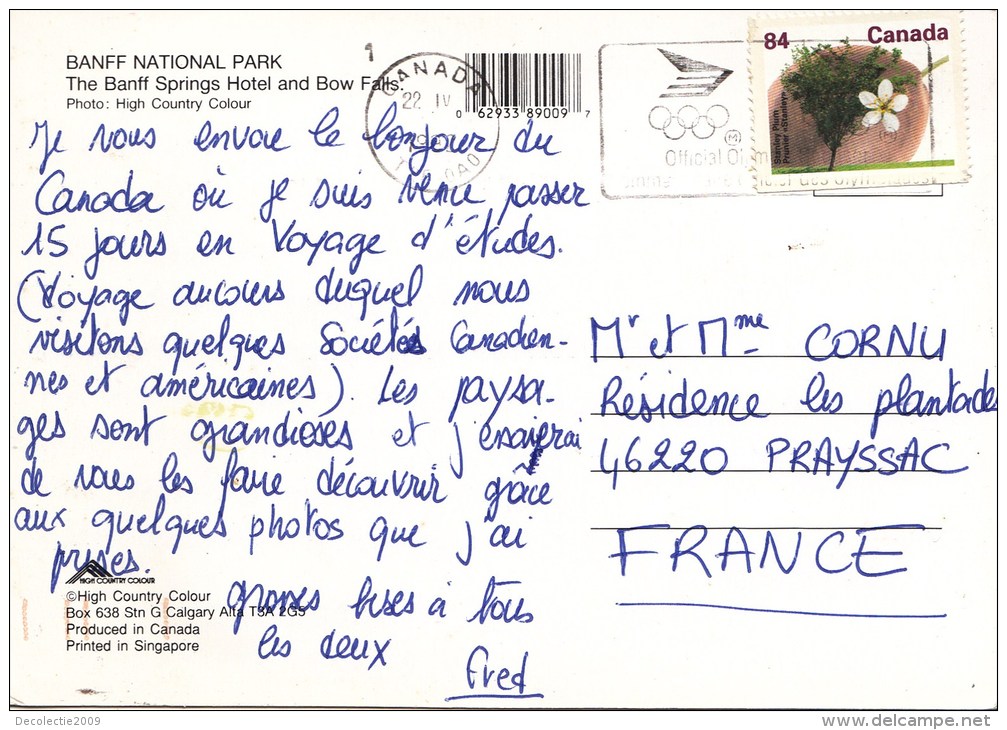 BANFF NATIONAL PARK
The Banff Springs Hotel and Bow Falls.
Photo: High Country Colour
1
CANADA
22 IV
0 62933 89009 7
Official
84
Canada
Stanley Plum
Prunier «Stanley»
Je vous envoie le bonjour du
Canada où je suis venu passer
15 jours en Voyage d'études.
(Voyage au cours duquel nous
visitons quelques Sociétés Canadien-
nes et américaines). Les paysa-
ges sont grandioses et j'essaierai
de vous les faire découvrir grâce
aux quelques photos que j'ai
prises.
grosses bises à tous
les deux
Fred
Mr et Mme CORNU
Résidence les plantades
46220 PRAYSSAC
FRANCE
HIGH COUNTRY COLOUR
©High Country Colour
Box 638 Stn G Calgary Alta T3A 2G5
Produced in Canada
Printed in Singapore
Decolectie2009
delcampe.net